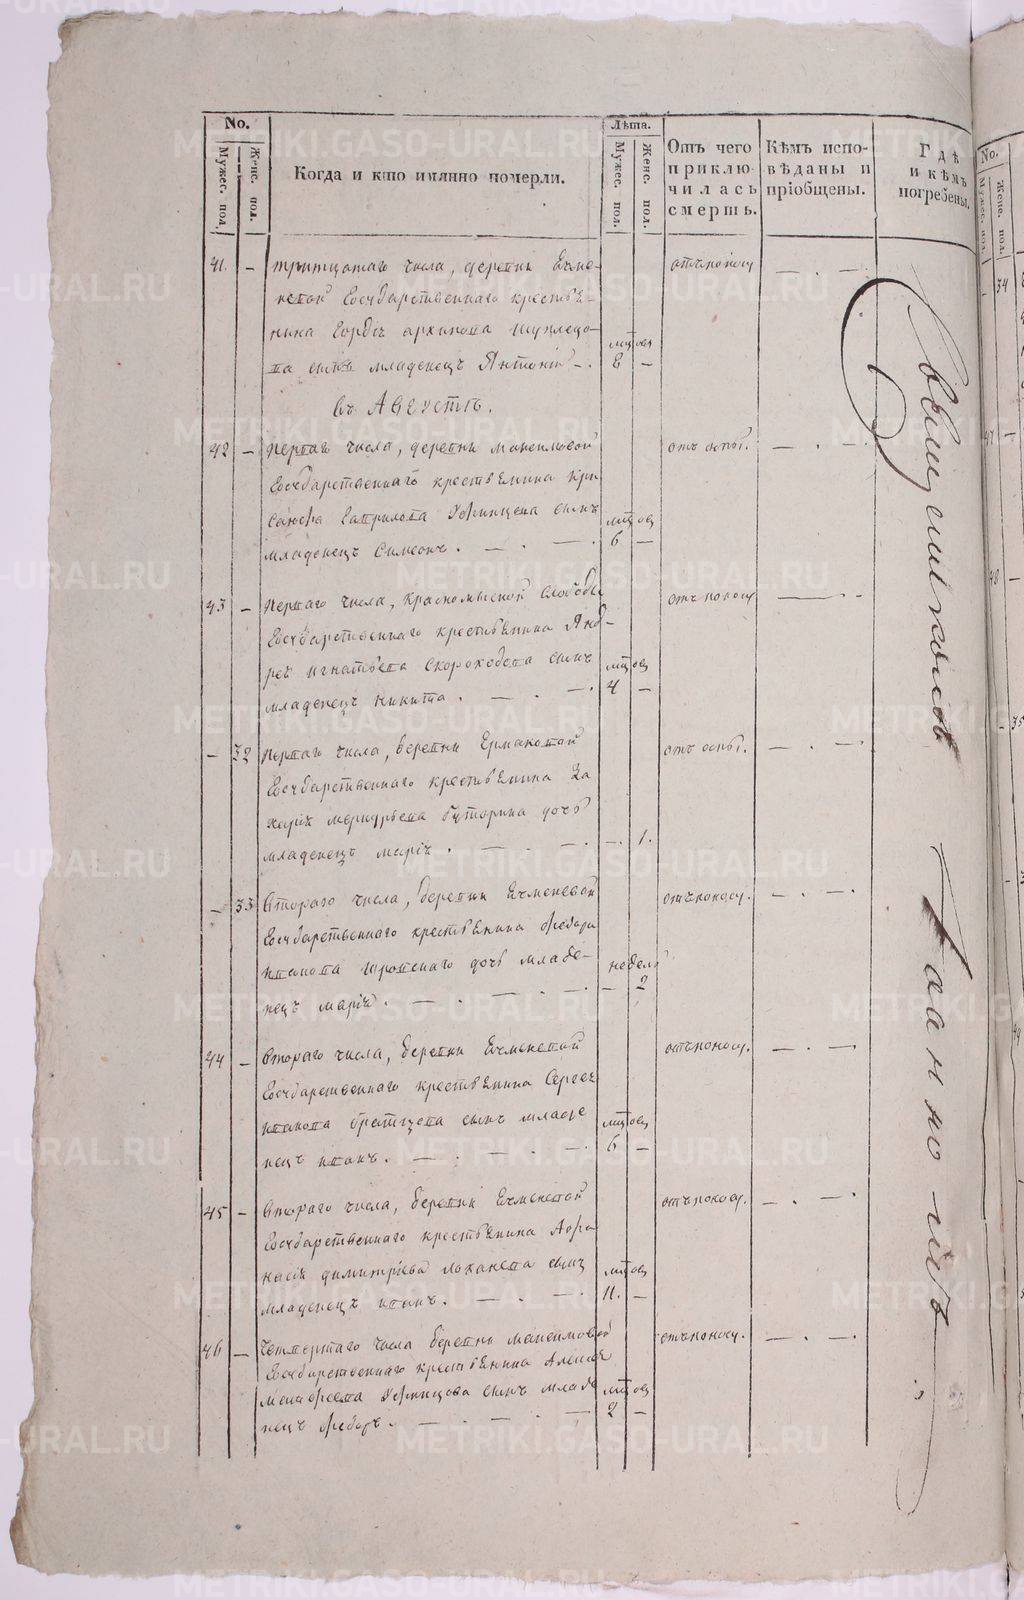 No.
Мужес. пол.
Женс. пол.
Когда и кто имянно померли.
Лѣта.
Мужес. пол.
Женс. пол.
Отъ чего приклю-
чилась
смерть.
Кѣмъ испо-
вѣданы и
пріобщены.
Гдѣ
и кѣмъ
погребены.
41. – тритцатаго числа, деревни Ечме-
невой Государственнаго крестья-
нина архипова
сынъ младенецъ Антоній –.
8 –
отъ поносу
въ Августѣ.
42 – перваго числа, деревни Максимовой
Государственнаго крестьянина Хри
санфа Гаврилова сынъ
младенецъ Симеонъ.
6 –
отъ оспы.
43 – перваго числа, красномыской Слободы
Государственнаго крестьянина Анд-
рея игнатьева Скороходова сынъ
младенецъ никита.
4 –
отъ поносу
– 32 перваго числа, деревни Ермаковой
Государственнаго крестьянина За
харія меркурьева Буторина дочь
младенецъ марія.
– 1.
отъ оспы.
– 33 втораго числа, деревни Ечменевой
Государственнаго крестьянина Федора
иванова дочь младе-
нецъ марія.
недель
– 2
отъ поносу.
44 – втораго числа, деревни Ечменевой
Государственнаго крестьянина Сергея
иванова братцева сынъ младе
нецъ иванъ.
6 –
отъ поносу.
45 – втораго числа, деревни Ечменевой
Государственнаго крестьянина Афа
насія димитріева Лоханева сынъ
младенецъ иванъ.
11. –
отъ поносу.
46 – Четвертаго числа деревни максимовой
Государственнаго крестьянина Алексея
сынъ младе
нецъ Федоръ.
2 –
отъ поносу.
Священникомъ
Іоанномъ
No.
Мужес. пол.
Женс. пол.
34
47
48
35